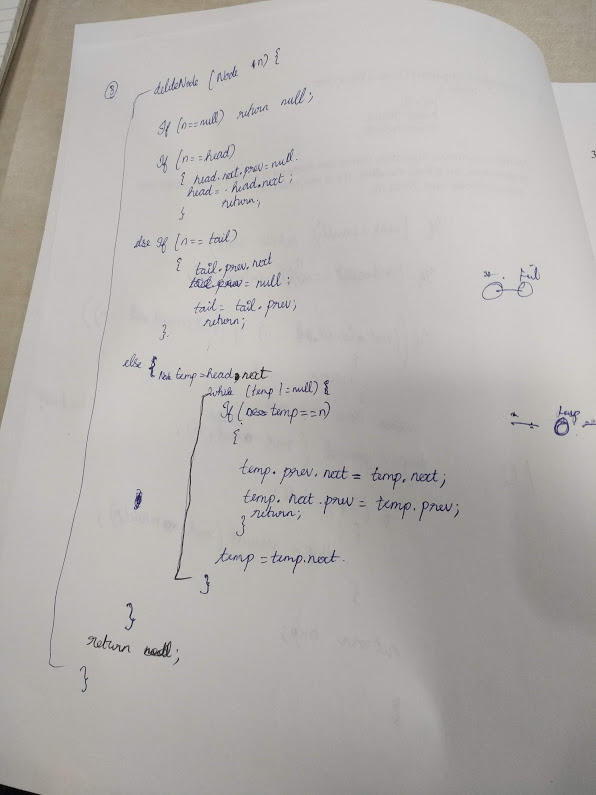 3
deleteNode (Node *n) {
If (n==null) return null;
If (n==head)
{ head.next.prev=null.
head = head.next;
return;
}
else If (n== tail)
{ tail.prev.next
= null;
tail = tail.prev;
return;
}
else { temp=head.next
while (temp != null) {
If (temp==n)
{
temp. prev. next = temp. next;
temp. next .prev = temp. prev;
return;
}
temp = temp.next.
}
}
return ;
}
3
tail
temp